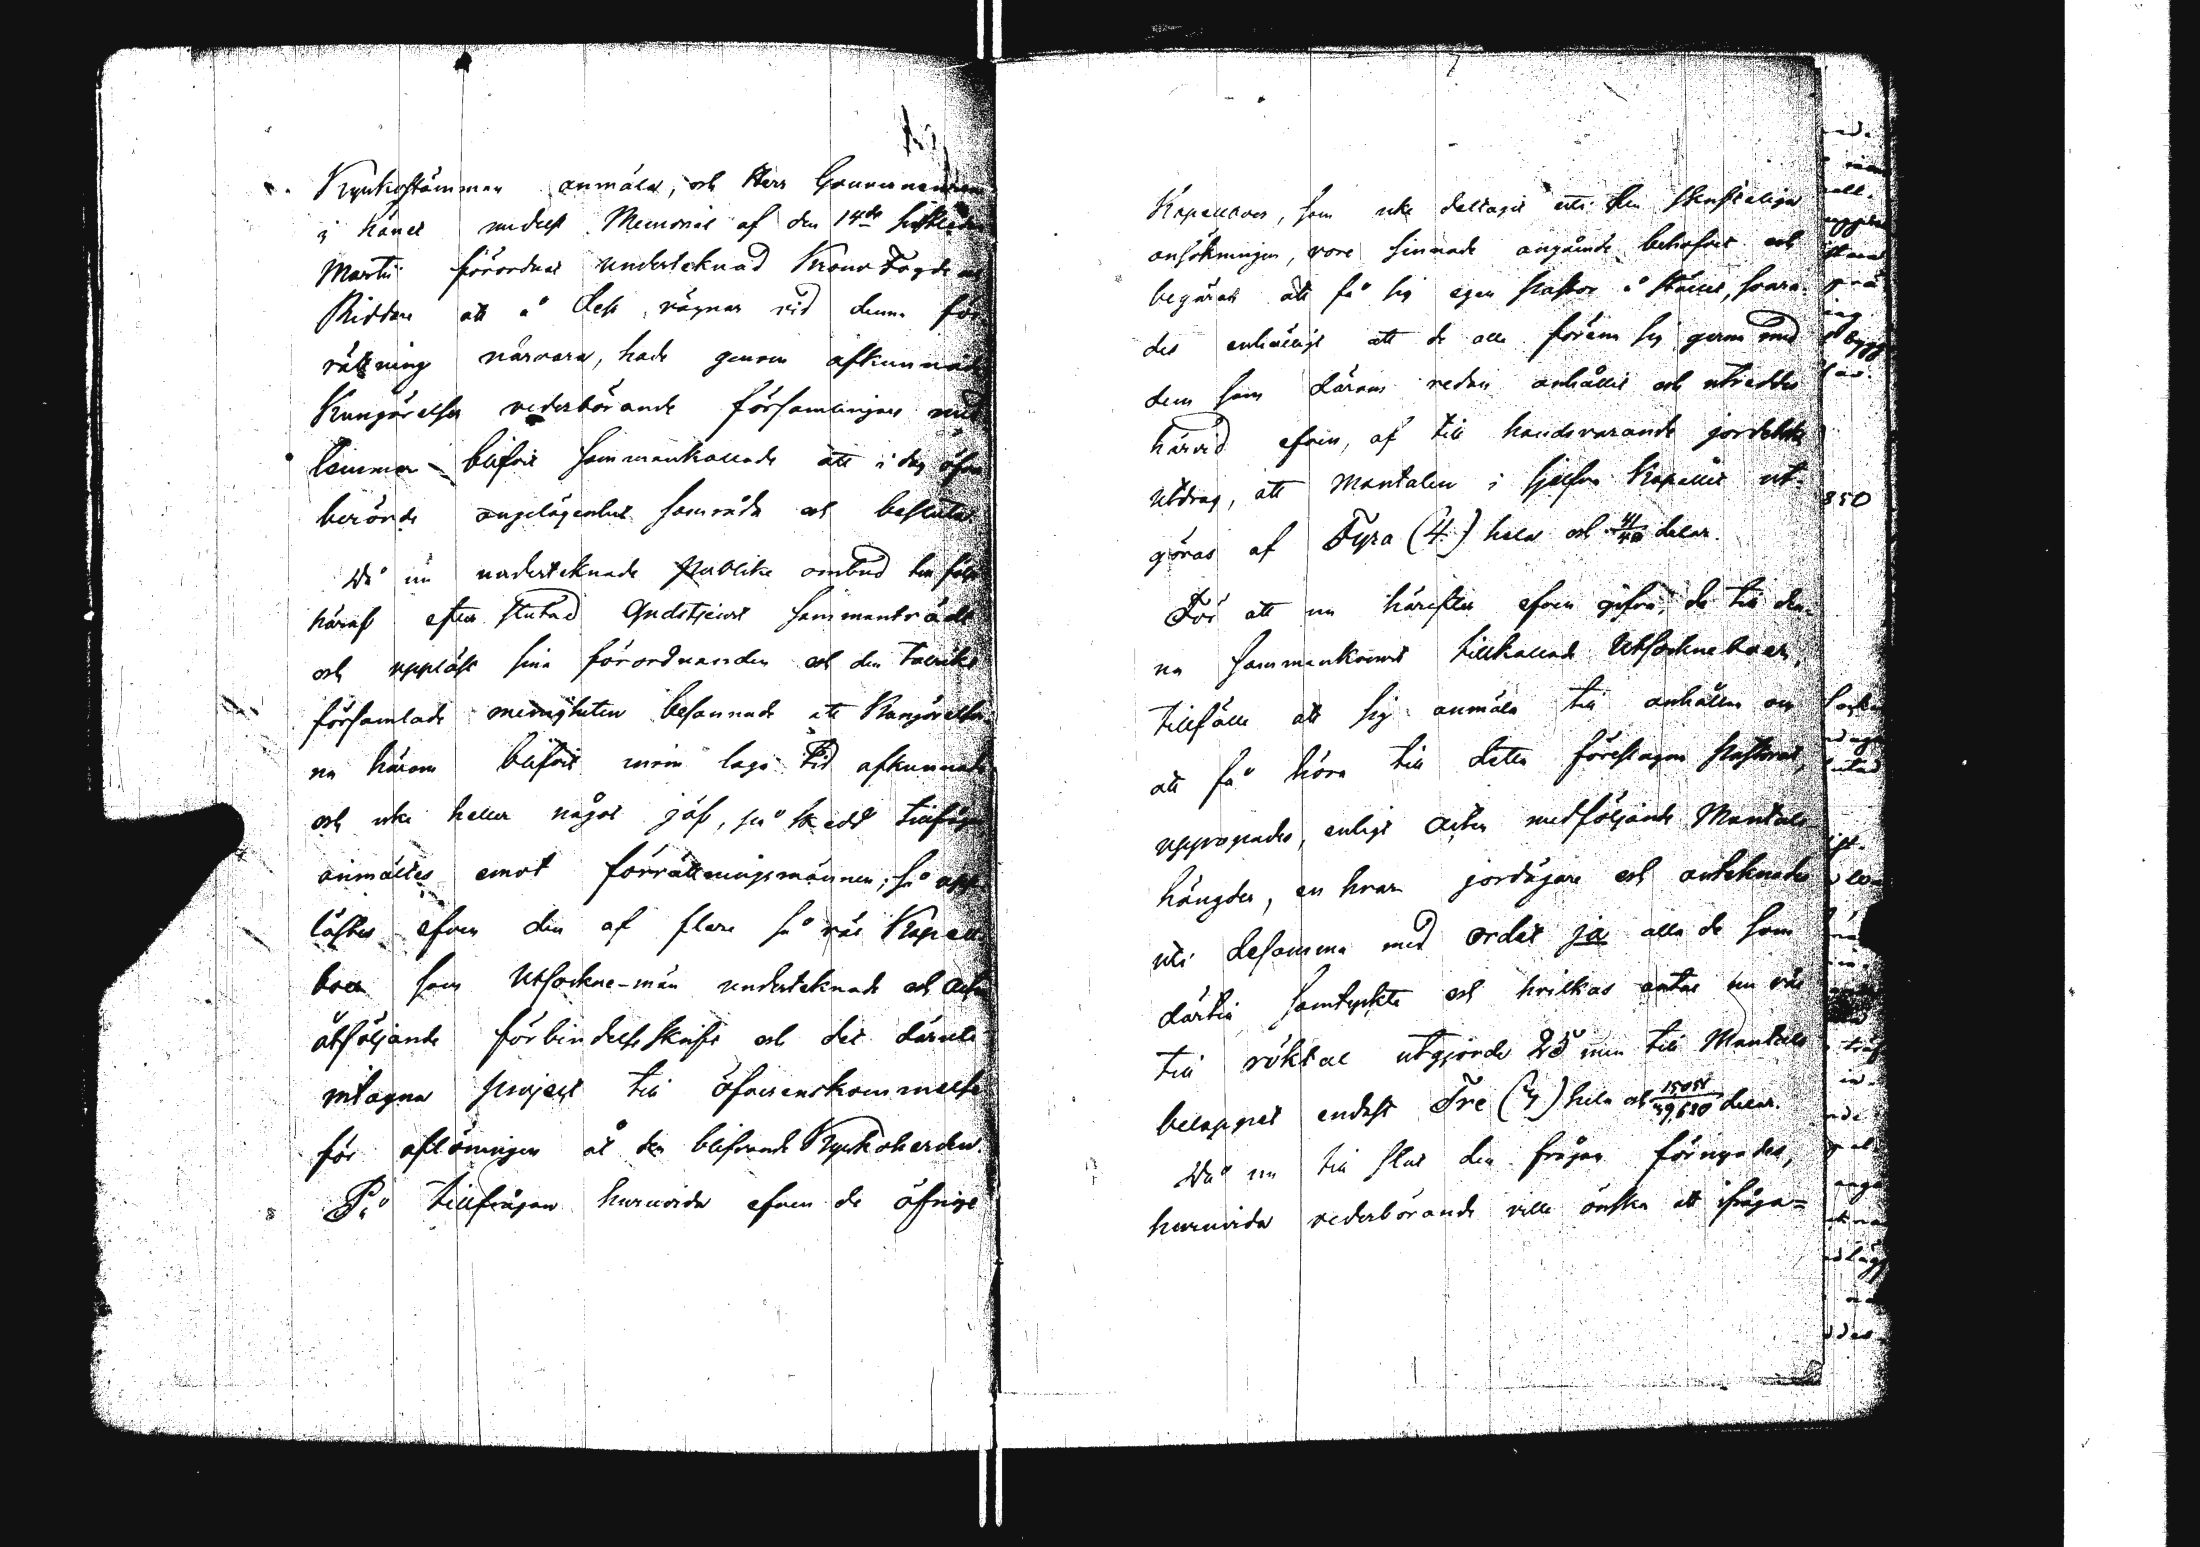 Kyrkostämman anmäla, och Herr Gouverneuren
i Länet medelst Memorial af den 14de sistledne
Martii förordnat undertecknad Krono Fogde och
Riddare att å Dess vägnar vid denna för-
rättning närvara, hade genom afkunnade
Kungörelser vederbörande församlingars med-
lemmar blifvit sammankallade att i dag öfver
berörde angelägenhet samråda och besluta.
Då nu undertecknade publike ombud till följe
häraf efter slutad Gudstjenst sammanträdt
och uppläst sina förordnanden och den talrikt
församlade menigheten besannade att Kungörelser-
na härom blifvit inom laga tid afkunnade
och icke heller något jäf, på skedd tillfrågan
anmältes emot förrättningsmännen; så upp-
lästes efven den af flere så väl Kapell-
boer som Utsockne-män undertecknade och Acten
åtföljande förbindelseskrift och det däruti
intagna project till öfverenskommelse
för aflöningen åt den blifvande Kyrkoherden.
På tillfrågan huruvida efven de öfrige
Kapellboer, som icke deltagit uti den skrifteliga
ansökningen, vore sinnade angående behofvet och
begäran att få sig egen Pastor i stället, svara-
des enhälligt att de alla förena sig gerna med
dem som därom redan anhållit och utreddes
härvid efven, af till handsvarande jordeboks
utdrag, att Mantalen i sjelfva Kapellet ut-
göras af Fyra (4) hela och 41/40 delar.
För att nu härefter efven gifva, de till den-
na sammankomst tillkallade Utsockneboer,
tillfälle att sig anmäla till anhållan om
att få höra till detta föreslagna Pastorat,
uppropades, enligt Acten medföljande Mantals
längder, en hvar jordägare och antecknades
uti desamma med ordet ja alla de som
därtill samtyckte och hvilkas antal nu väl
till röktal utgjorde 25 men till Mantals
beloppet endast Tre (3) hela och delar.
Då nu till slut den frågan förnyades,
huruvida vederbörande ville önska att ifråga=
850